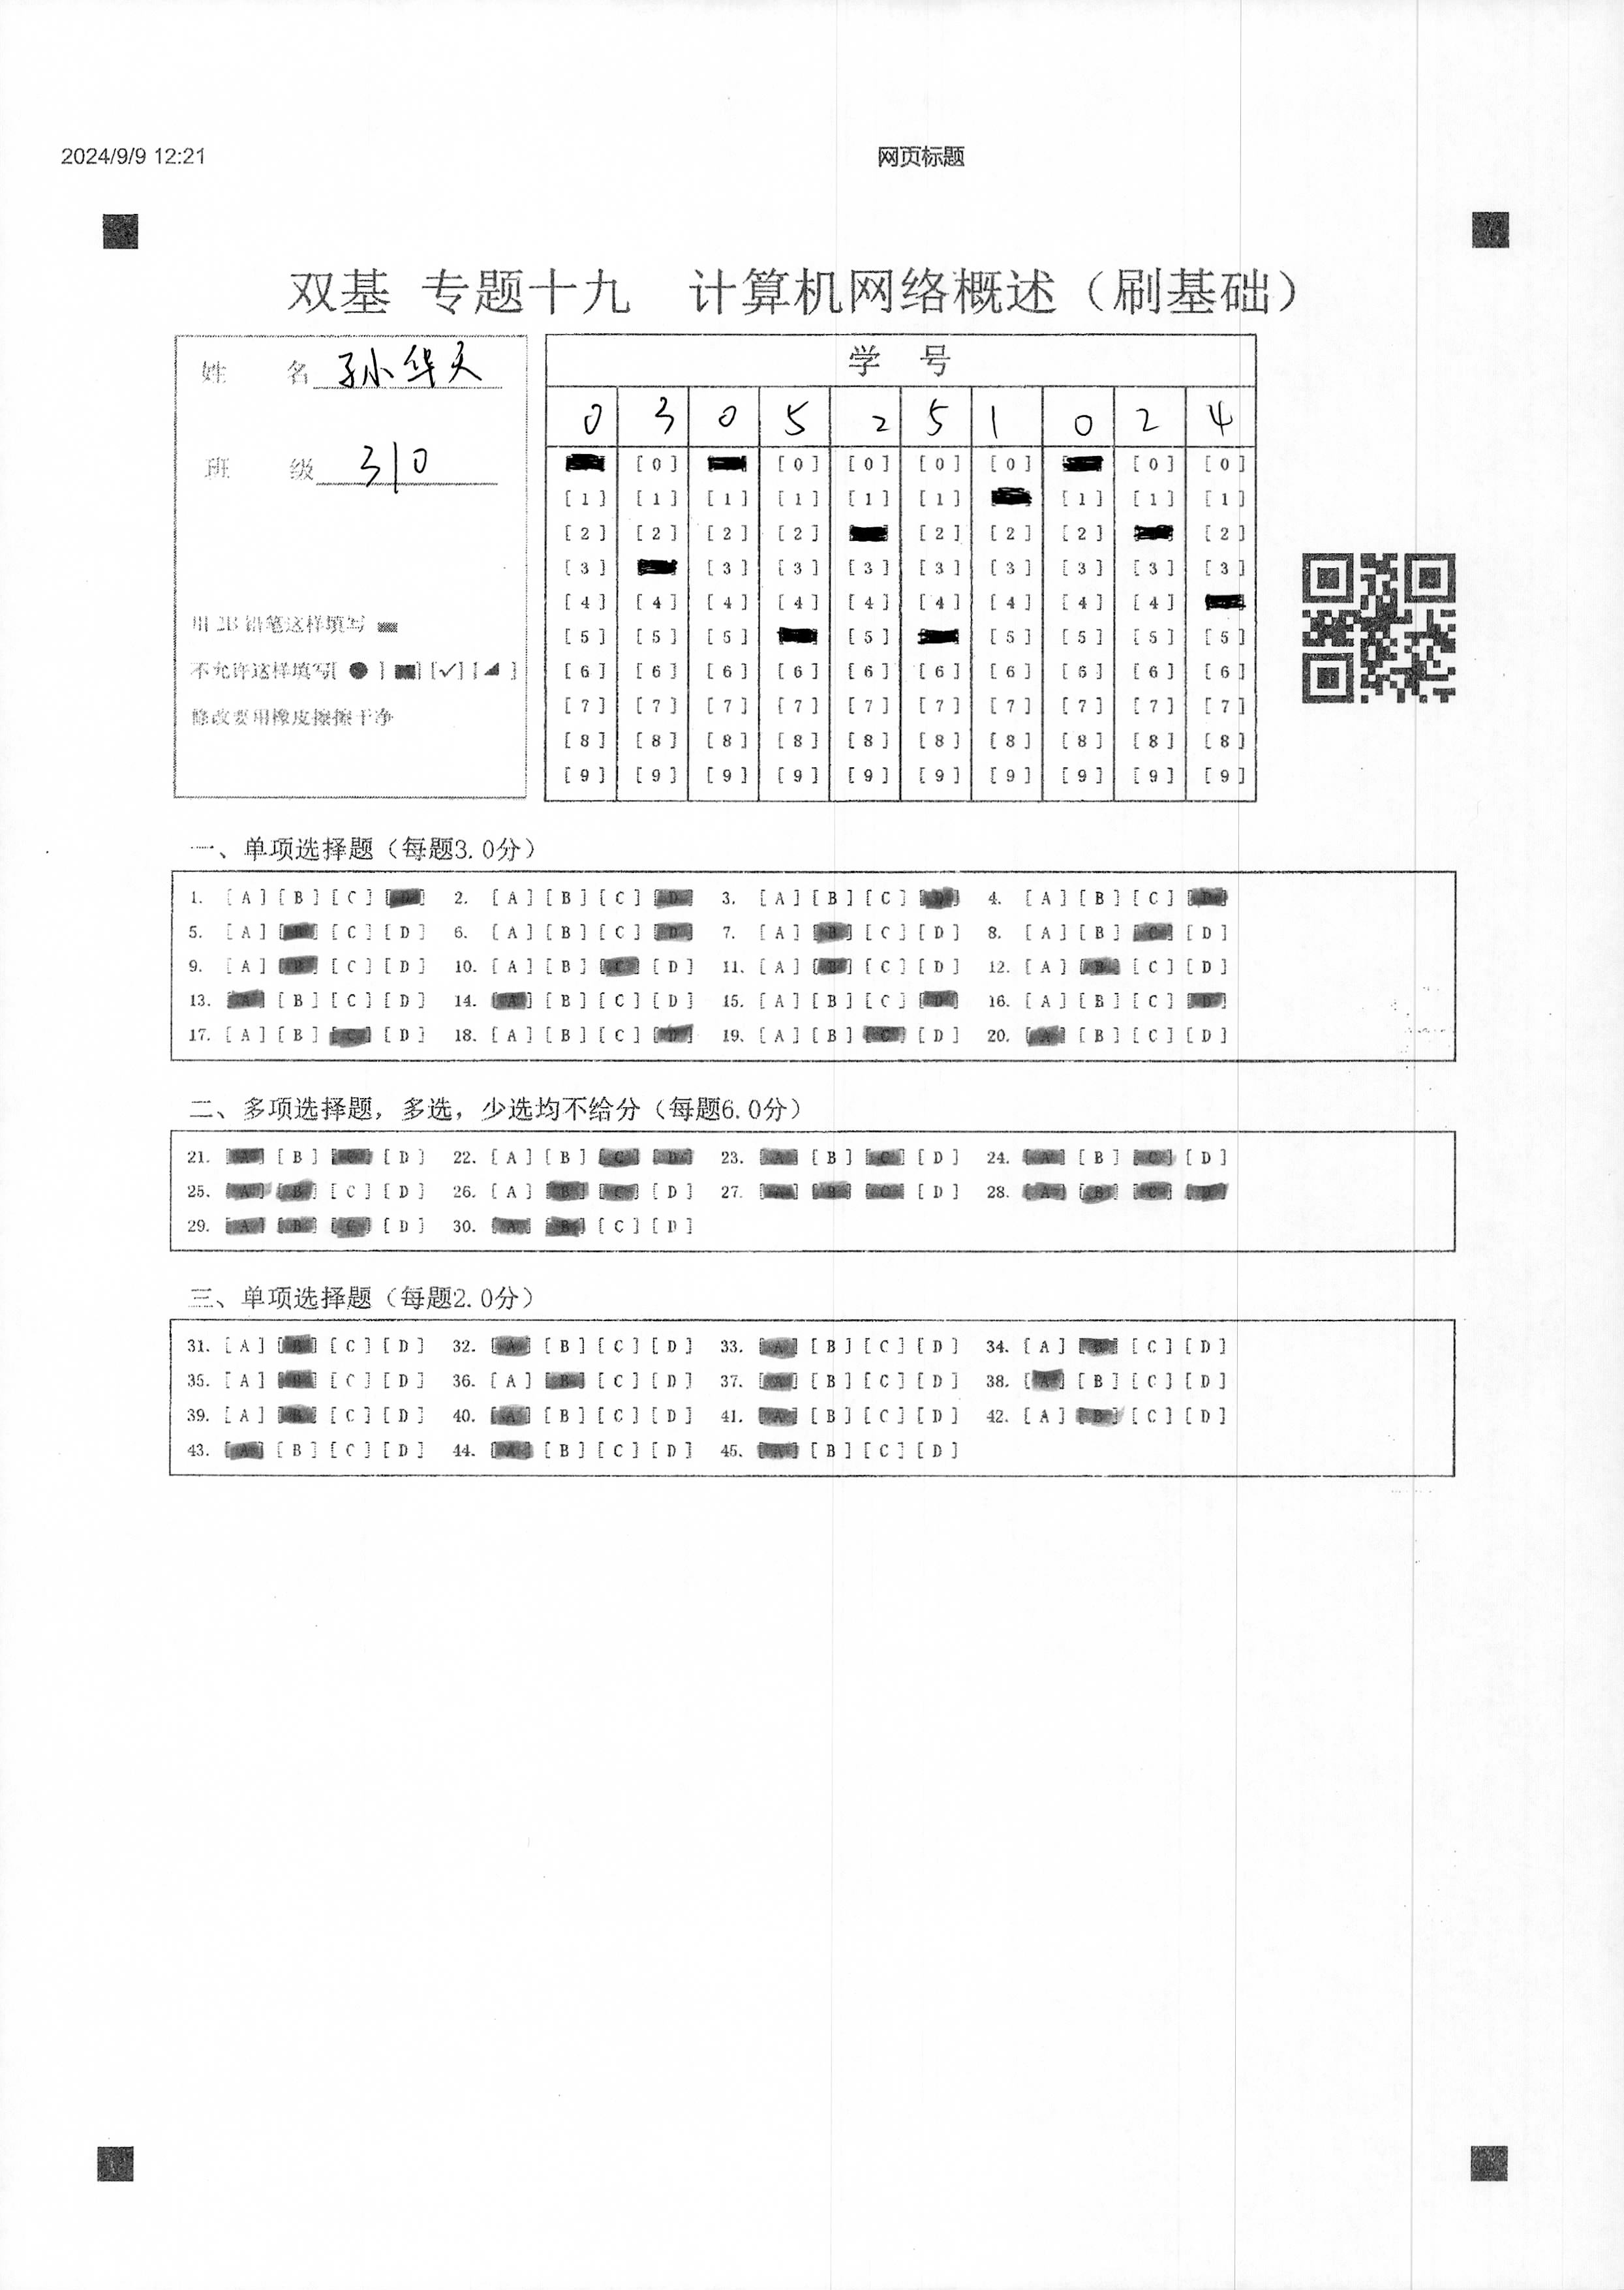 2024/9/9 12:21 网页标题
双基 专题十九 计算机网络概述（刷基础）
姓 名 孙华天
班 级 310
用 2B 铅笔这样填写
不允许这样填写[ ● ] [■] [✓] [◢ ]
修改要用橡皮擦擦干净
学 号
0 3 0 5 2 5 1 0 2 4
[0] [0] [0] [0] [0] [0] [0]
[1] [1] [1] [1] [1] [1] [1] [1] [1]
[2] [2] [2] [2] [2] [2] [2] [2]
[3] [3] [3] [3] [3] [3] [3] [3] [3]
[4] [4] [4] [4] [4] [4] [4] [4] [4]
[5] [5] [5] [5] [5] [5] [5] [5]
[6] [6] [6] [6] [6] [6] [6] [6] [6] [6]
[7] [7] [7] [7] [7] [7] [7] [7] [7] [7]
[8] [8] [8] [8] [8] [8] [8] [8] [8] [8]
[9] [9] [9] [9] [9] [9] [9] [9] [9] [9]
一、单项选择题（每题3.0分）
1. [A] [B] [C] [D] 2. [A] [B] [C] [D] 3. [A] [B] [C] [D] 4. [A] [B] [C] [D]
5. [A] [B] [C] [D] 6. [A] [B] [C] [D] 7. [A] [B] [C] [D] 8. [A] [B] [C] [D]
9. [A] [B] [C] [D] 10. [A] [B] [C] [D] 11. [A] [B] [C] [D] 12. [A] [B] [C] [D]
13. [A] [B] [C] [D] 14. [A] [B] [C] [D] 15. [A] [B] [C] [D] 16. [A] [B] [C] [D]
17. [A] [B] [C] [D] 18. [A] [B] [C] [D] 19. [A] [B] [C] [D] 20. [A] [B] [C] [D]
二、多项选择题，多选，少选均不给分（每题6.0分）
21. [A] [B] [C] [D] 22. [A] [B] [C] [D] 23. [A] [B] [C] [D] 24. [A] [B] [C] [D]
25. [A] [B] [C] [D] 26. [A] [B] [C] [D] 27. [A] [B] [C] [D] 28. [A] [B] [C] [D]
29. [A] [B] [C] [D] 30. [A] [B] [C] [D]
三、单项选择题（每题2.0分）
31. [A] [B] [C] [D] 32. [A] [B] [C] [D] 33. [A] [B] [C] [D] 34. [A] [B] [C] [D]
35. [A] [B] [C] [D] 36. [A] [B] [C] [D] 37. [A] [B] [C] [D] 38. [A] [B] [C] [D]
39. [A] [B] [C] [D] 40. [A] [B] [C] [D] 41. [A] [B] [C] [D] 42. [A] [B] [C] [D]
43. [A] [B] [C] [D] 44. [A] [B] [C] [D] 45. [A] [B] [C] [D]